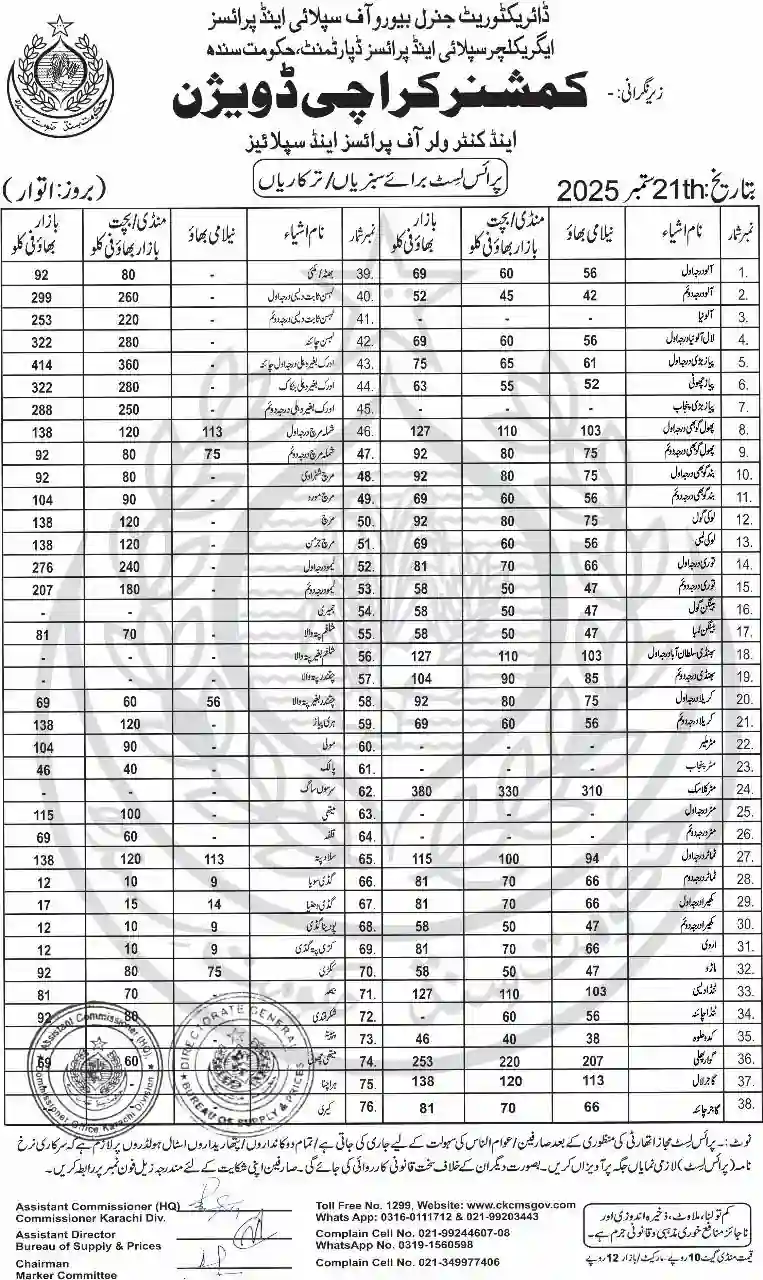 ڈائریکٹوریٹ جنرل بیورو آف سپلائی اینڈ پرائسز
ایگریکلچر سپلائی اینڈ پرائسز ڈپارٹمنٹ، حکومت سندھ
زیر نگرانی: - کمشنر کراچی ڈویژن
اینڈ کنٹرولر آف پرائسز اینڈ سپلائیز
بتاریخ: 21th ستمبر 2025 پرائس لسٹ برائے سبزیاں/ترکاریاں (بروز: اتوار)
نمبر شمار نام اشیاء نیلامی بھاؤ منڈی/بچت بازار بھاؤ فی کلو بازار بھاؤ فی کلو نمبر شمار نام اشیاء نیلامی بھاؤ منڈی/بچت بازار بھاؤ فی کلو بازار بھاؤ فی کلو
1. آلو درجہ اول 56 60 69 39. - 80 92
2. آلو درجہ دوئم 42 45 52 40. لہسن ثابت دیسی درجہ اول - 260 299
3. - - - 41. لہسن ثابت دیسی درجہ دوئم - 220 253
4. 56 60 69 42. لہسن چائنہ - 280 322
5. پیاز بڑی درجہ اول 61 65 75 43. - 360 414
6. پیاز چھوٹی 52 55 63 44. - 280 322
7. پیاز بڑی پنجاب - - - 45. - 250 288
8. پھول گوبھی درجہ اول 103 110 127 46. شملہ مرچ درجہ اول 113 120 138
9. پھول گوبھی درجہ دوئم 75 80 92 47. شملہ مرچ درجہ دوئم 75 80 92
10. بند گوبھی درجہ اول 75 80 92 48. - 80 92
11. بند گوبھی درجہ دوئم 56 60 69 49. - 90 104
12. لوکی گول 75 80 92 50. مرچ - 120 138
13. لوکی لمبی 56 60 69 51. - 120 138
14. توری درجہ اول 66 70 81 52. لیمو درجہ اول - 240 276
15. توری درجہ دوئم 47 50 58 53. لیمو درجہ دوئم - 180 207
16. بینگن گول 47 50 58 54. - - -
17. بینگن لمبا 47 50 58 55. شلغم پتہ والا - 70 81
18. بھنڈی سلطان آباد درجہ اول 103 110 127 56. شلغم بغیر پتہ والا - - -
19. بھنڈی درجہ دوئم 85 90 104 57. چقندر پتہ والا - - -
20. کریلا درجہ اول 75 80 92 58. چقندر بغیر پتہ والا 56 60 69
21. کریلا درجہ دوئم 56 60 69 59. ہری پیاز - 120 138
22. مٹر ملیر - - - 60. مولی - 90 104
23. مٹر پنجاب - - - 61. پالک - 40 46
24. 310 330 380 62. سرسوں ساگ - - -
25. مٹر درجہ اول - - - 63. میتھی - 100 115
26. مٹر درجہ دوئم - - - 64. قلفہ - 60 69
27. ٹماٹر درجہ اول 94 100 115 65. سلاد پتہ 113 120 138
28. ٹماٹر درجہ دوم 66 70 81 66. گڈی سویا 9 10 12
29. کھیرا درجہ اول 66 70 81 67. گڈی دھنیا 14 15 17
30. کھیرا درجہ دوئم 47 50 58 68. پودینا گڈی 9 10 12
31. اروی 66 70 81 69. کڑی پتہ گڈی 9 10 12
32. 47 50 58 70. ککڑی 75 80 92
33. ٹنڈا دیسی 103 110 127 71. - 70 81
34. ٹنڈا چائنہ 56 60 - 72. شکرقندی 80 92
35. کدو حلوہ 38 40 46 73.
36. گوار پھلی 207 220 253 74. میتھی چھوٹی 60 69
37. گاجر لال 113 120 138 75.
38. گاجر چائنہ 66 70 81 76. کیری
نوٹ: - پرائس لسٹ مجاز اتھارٹی کی منظوری کے بعد صارفین/عوام الناس کی سہولت کے لیے جاری کی جاتی ہے/تمام دوکانداروں/پتھاریداروں اسٹال ہولڈروں پر لازم ہے کہ سرکاری نرخ
نامہ (پرائس لسٹ) لازمی نمایاں جگہ پر آویزاں کریں۔ بصورت دیگر ان کے خلاف سخت قانونی کارروائی کی جائے گی۔ صارفین اپنی شکایت کے لئے مندرجہ زیل فون نمبر پر رابطہ کریں۔
Assistant Commissioner (HQ)
Commissioner Karachi Div.
Assistant Director
Bureau of Supply & Prices
Chairman
Marker Committee
Toll Free No. 1299, Website: www.ckcmsgov.com
Whats App: 0316-0111712 & 021-99203443
Complain Cell No. 021-99244607-08
WhatsApp No. 0319-1560598
Complain Cell No. 021-349977406
کم تولنا، ملاوٹ، ذخیرہ اندوزی اور
ناجائز منافع خوری مذہبی و قانونی جرم ہے۔
قیمت منڈی گیٹ 10 روپے، مارکیٹ/بازار 12 روپے
Assistant Commissioner (HQ)
Commissioner Office Karachi Division
DIRECTORATE GENERAL
BUREAU OF SUPPLY & PRICES